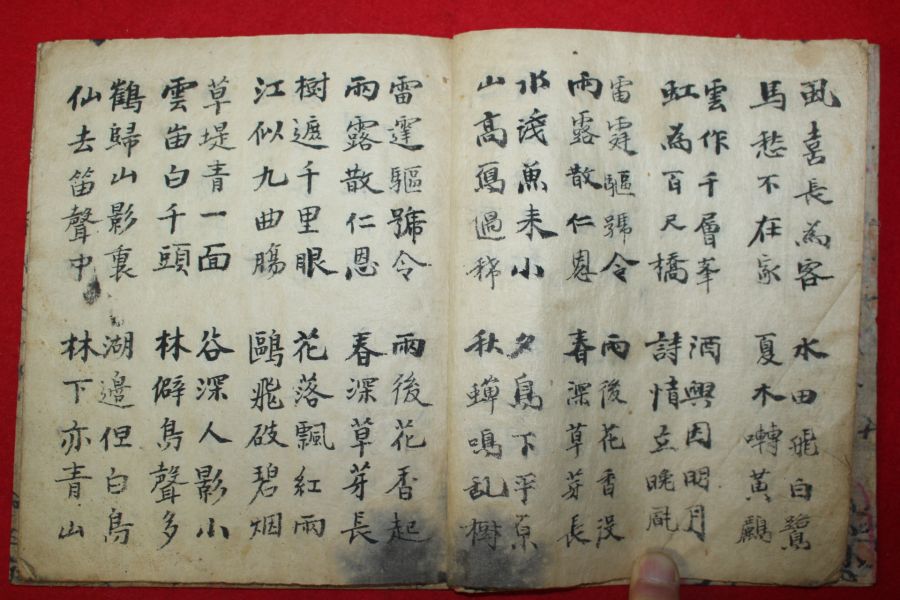 虱喜長為客
馬愁不在家
雲作千層峯
虹為百尺橋
雷霆驅號令
雨露散仁恩
水淺魚来小
山高鴈過稀
水田飛白鷺
夏木囀黃鸝
酒興因明月
詩情立晚風
雨後花香
春深草芽長
夕鳥下平原
秋蟬鳴乱樹
雷霆驅號令
雨露散仁恩
樹遮千里眼
江似九曲膓
草堤青一面
雲白千頭
鶴歸山影裏
仙去笛聲中
雨後花香起
春深草芽長
花落飄紅雨
鷗飛破碧烟
谷深人影小
林僻鳥聲多
湖邊但白鳥
林下亦青山